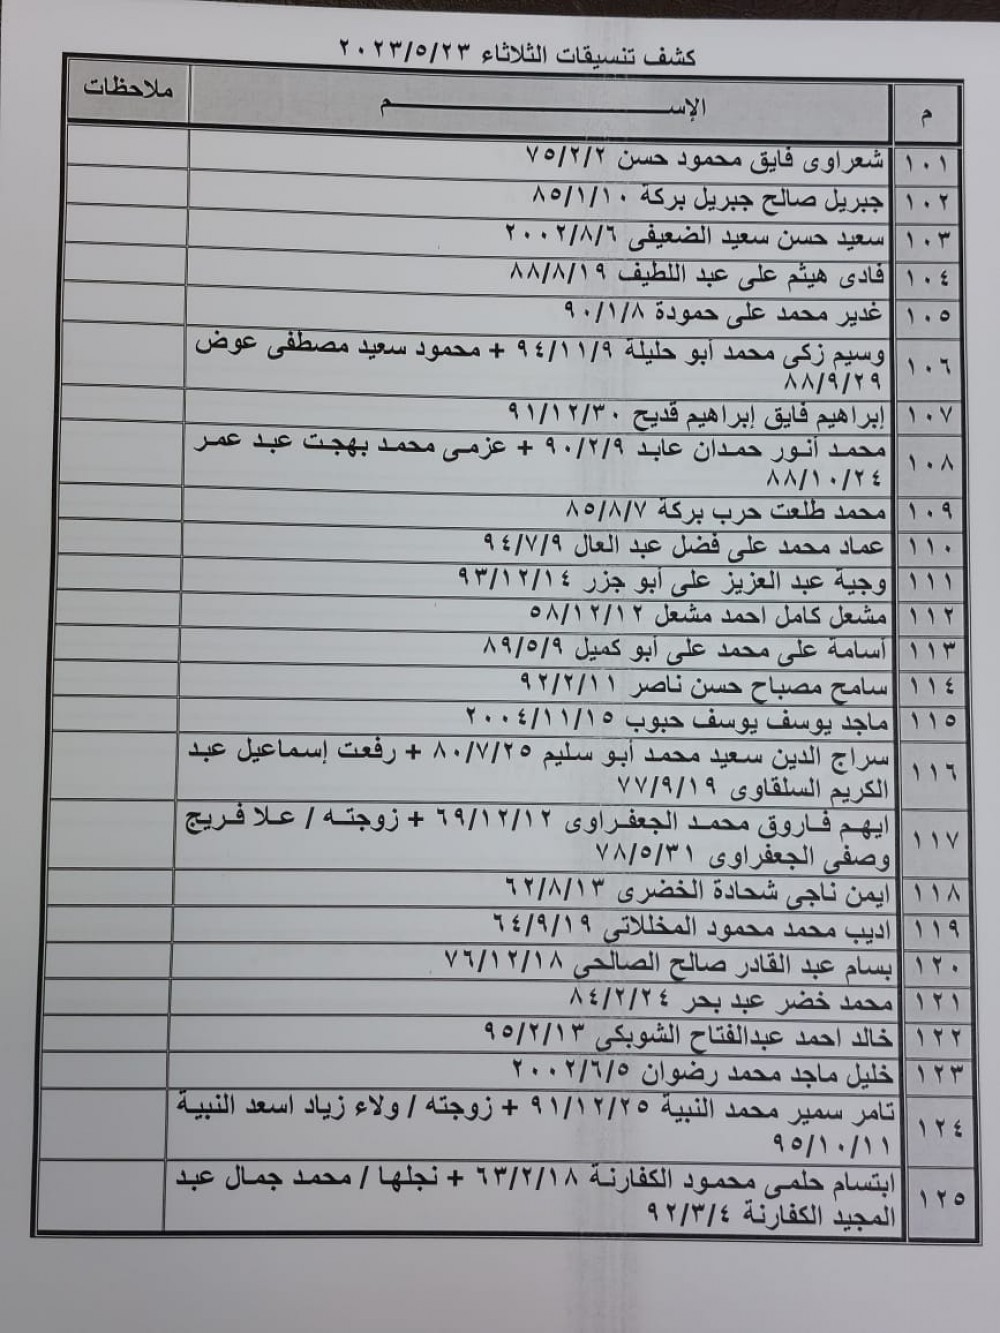 كشف تنسيقات الثلاثاء ٢٠٢٣/٥/٢٣
م الإســـــــــم ملاحظات
١٠١ شعراوى فايق محمود حسن ٧٥/٢/٢
١٠٢ جبريل صالح جبريل بركة ٨٥/١/١٠
١٠٣ سعيد حسن سعيد الضعيفى ٢٠٠٢/٨/٦
١٠٤ فادى هيثم على عبد اللطيف ٨٨/٨/١٩
١٠٥ غدير محمد على حمودة ٩٠/١/٨
١٠٦ وسيم زكى محمد أبو حليلة ٩٤/١١/٩ + محمود سعيد مصطفى عوض
٨٨/٩/٢٩
١٠٧ إبراهيم فايق إبراهيم قديح ٩١/١٢/٣٠
١٠٨ محمد أنور حمدان عابد ٩٠/٢/٩ + عزمى محمد بهجت عبد عمر
٨٨/١٠/٢٤
١٠٩ محمد طلعت حرب بركة ٨٥/٨/٧
١١٠ عماد محمد على فضل عبد العال ٩٤/٧/٩
١١١ وجية عبد العزيز على أبو جزر ٩٣/١٢/١٤
١١٢ مشعل كامل احمد مشعل ٥٨/١٢/١٢
١١٣ أسامة على محمد على أبو كميل ٨٩/٥/٩
١١٤ سامح مصباح حسن ناصر ٩٢/٢/١١
١١٥ ماجد يوسف يوسف حبوب ٢٠٠٤/١١/١٥
١١٦ سراج الدين سعيد محمد أبو سليم ٨٠/٧/٢٥ + رفعت إسماعيل عبد
الكريم السلقاوى ٧٧/٩/١٩
١١٧ ايهم فاروق محمد الجعفراوى ٦٩/١٢/١٢ + زوجته / علا فريج
وصفى الجعفراوى ٧٨/٥/٣١
١١٨ ايمن ناجى شحادة الخضرى ٦٢/٨/١٣
١١٩ اديب محمد محمود المخللاتى ٦٤/٩/١٩
١٢٠ بسام عبد القادر صالح الصالحى ٧٦/١٢/١٨
١٢١ محمد خضر عبد بحر ٨٤/٢/٢٤
١٢٢ خالد احمد عبدالفتاح الشوبكى ٩٥/٢/١٣
١٢٣ خليل ماجد محمد رضوان ٢٠٠٢/٦/٥
١٢٤ تامر سمير محمد النبية ٩١/١٢/٢٥ + زوجته / ولاء زياد اسعد النبية
٩٥/١٠/١١
١٢٥ ابتسام حلمى محمود الكفارنة ٦٣/٢/١٨ + نجلها / محمد جمال عبد
المجيد الكفارنة ٩٢/٣/٤